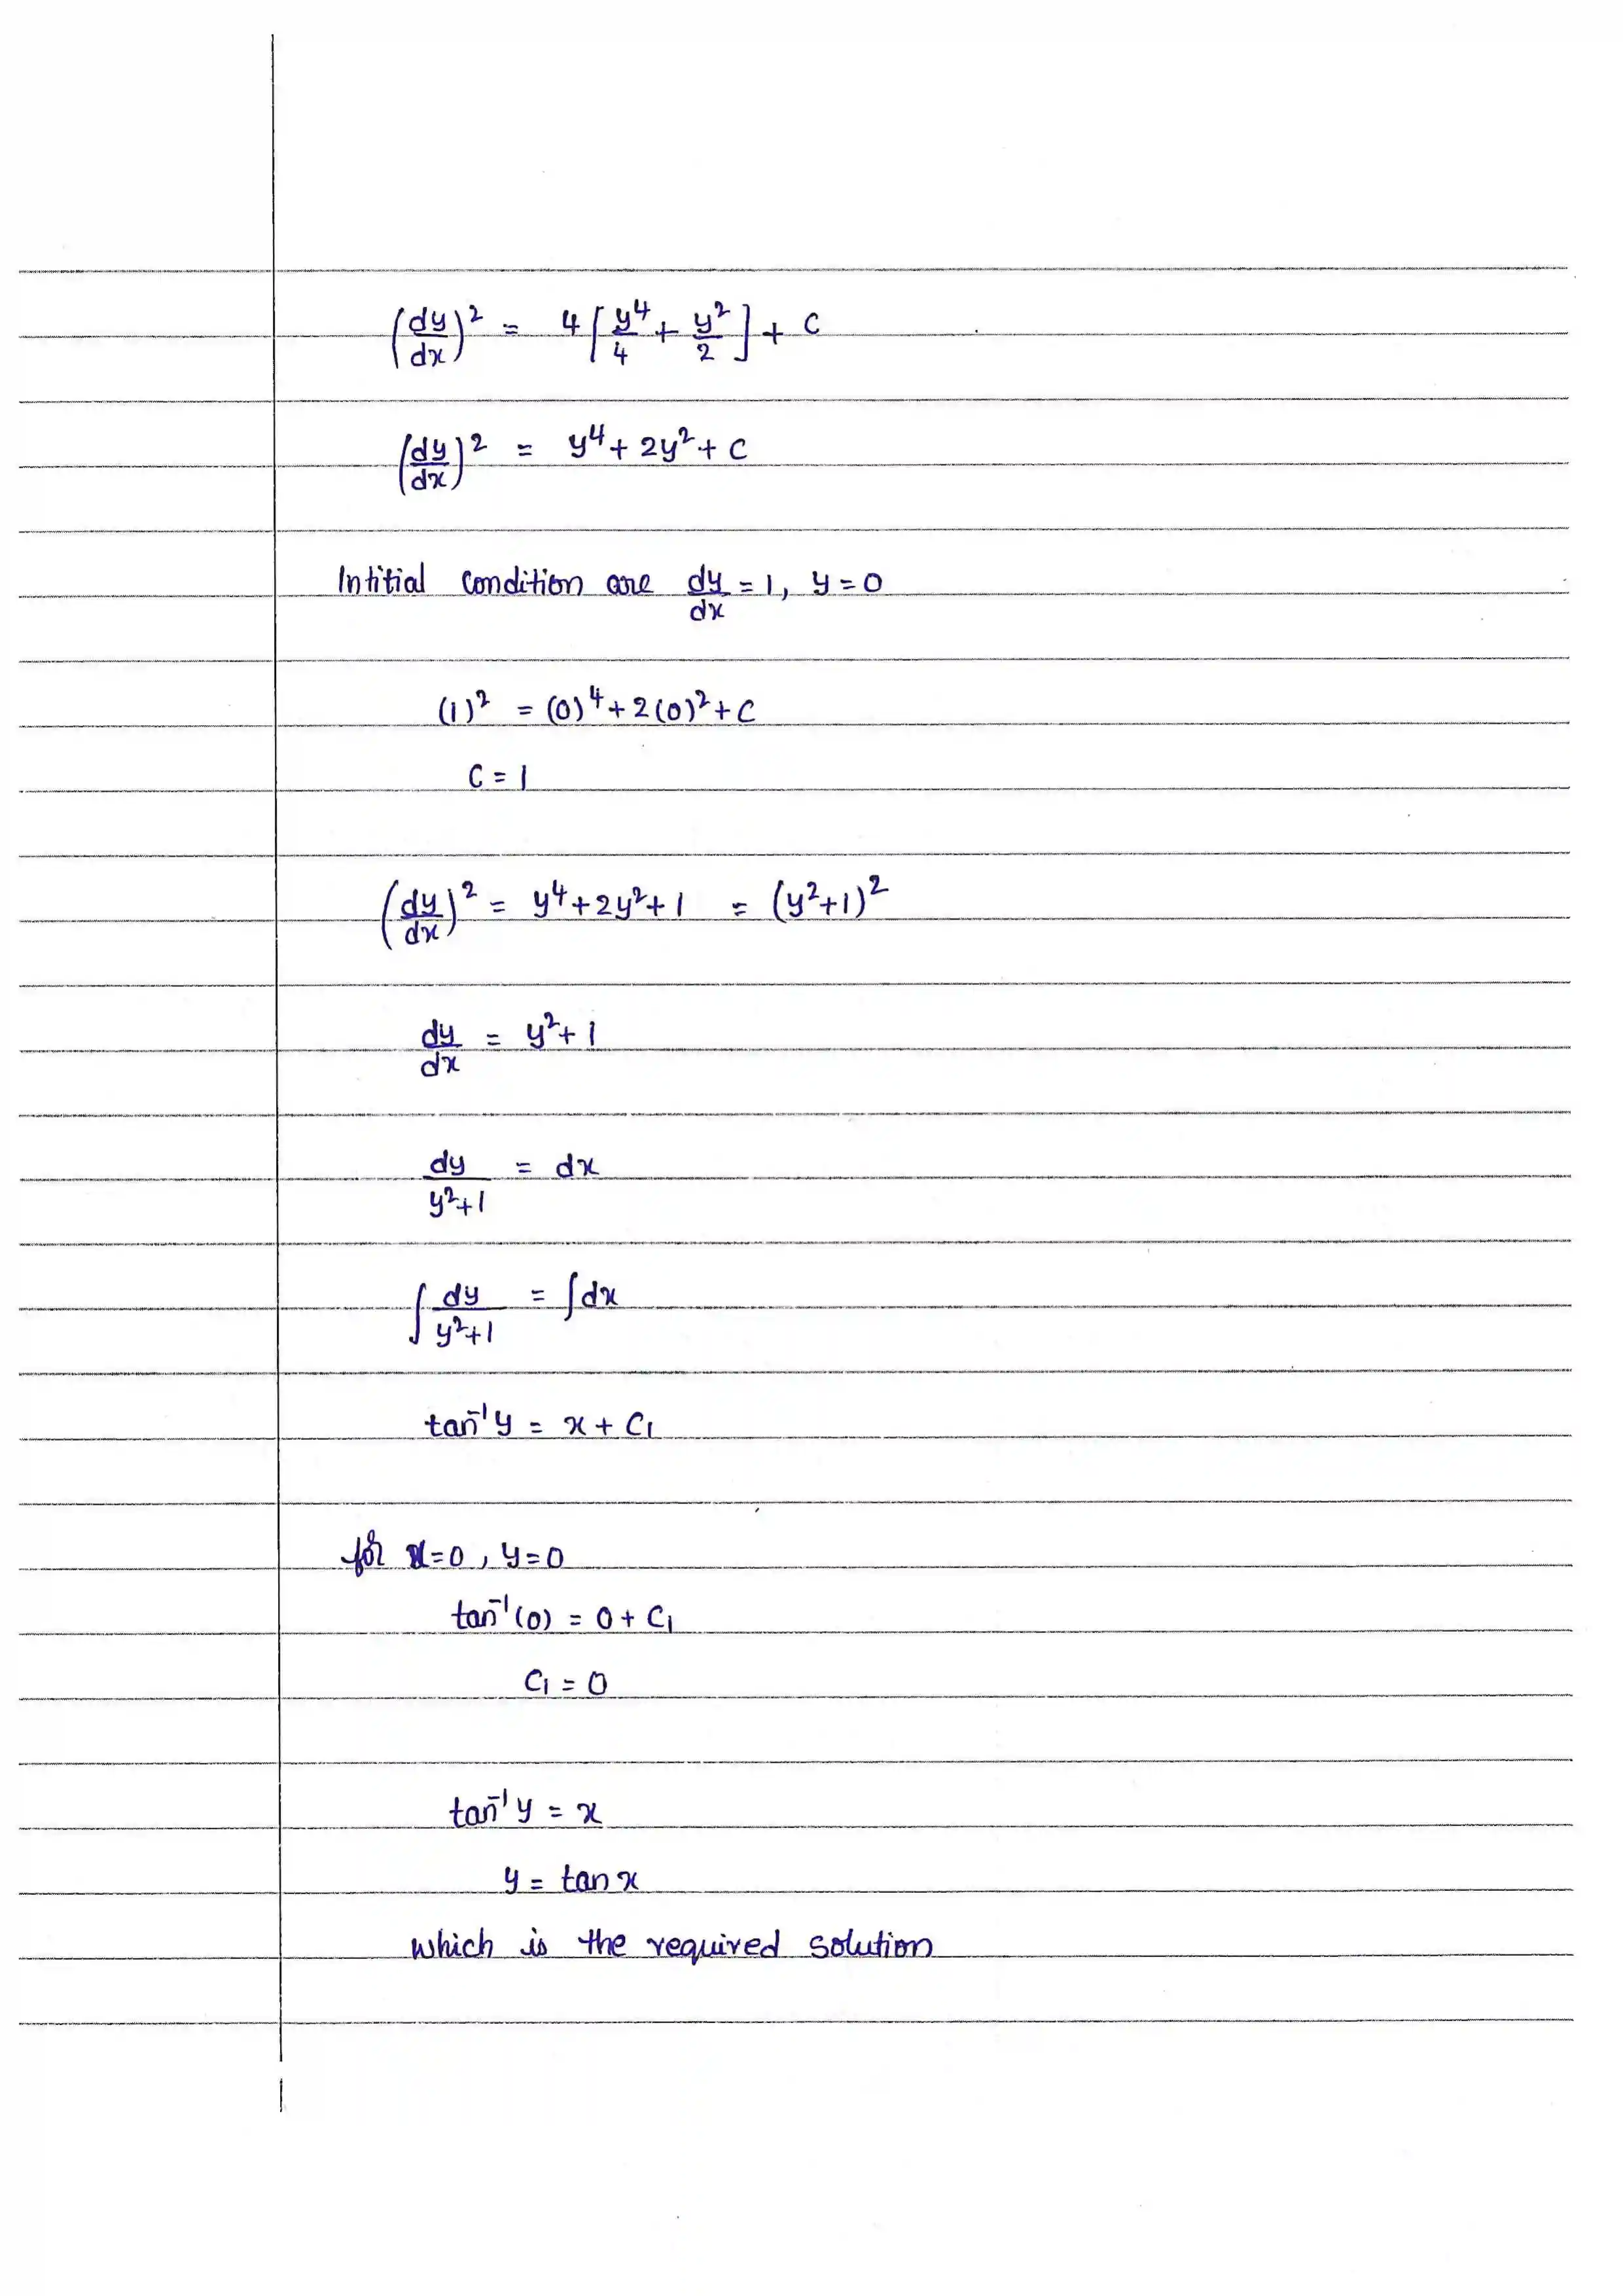 (dy/dx)² = 4[y⁴/4 + y²/2] + c
(dy/dx)² = y⁴ + 2y² + c
Intitial condition are dy/dx = 1, y = 0
(1)² = (0)⁴ + 2(0)² + c
c = 1
(dy/dx)² = y⁴ + 2y² + 1 = (y²+1)²
dy/dx = y² + 1
dy/(y²+1) = dx
∫ dy/(y²+1) = ∫dx
tan⁻¹y = x + c₁
for x=0, y=0
tan⁻¹(0) = 0 + c₁
c₁ = 0
tan⁻¹y = x
y = tan x
which is the required solution